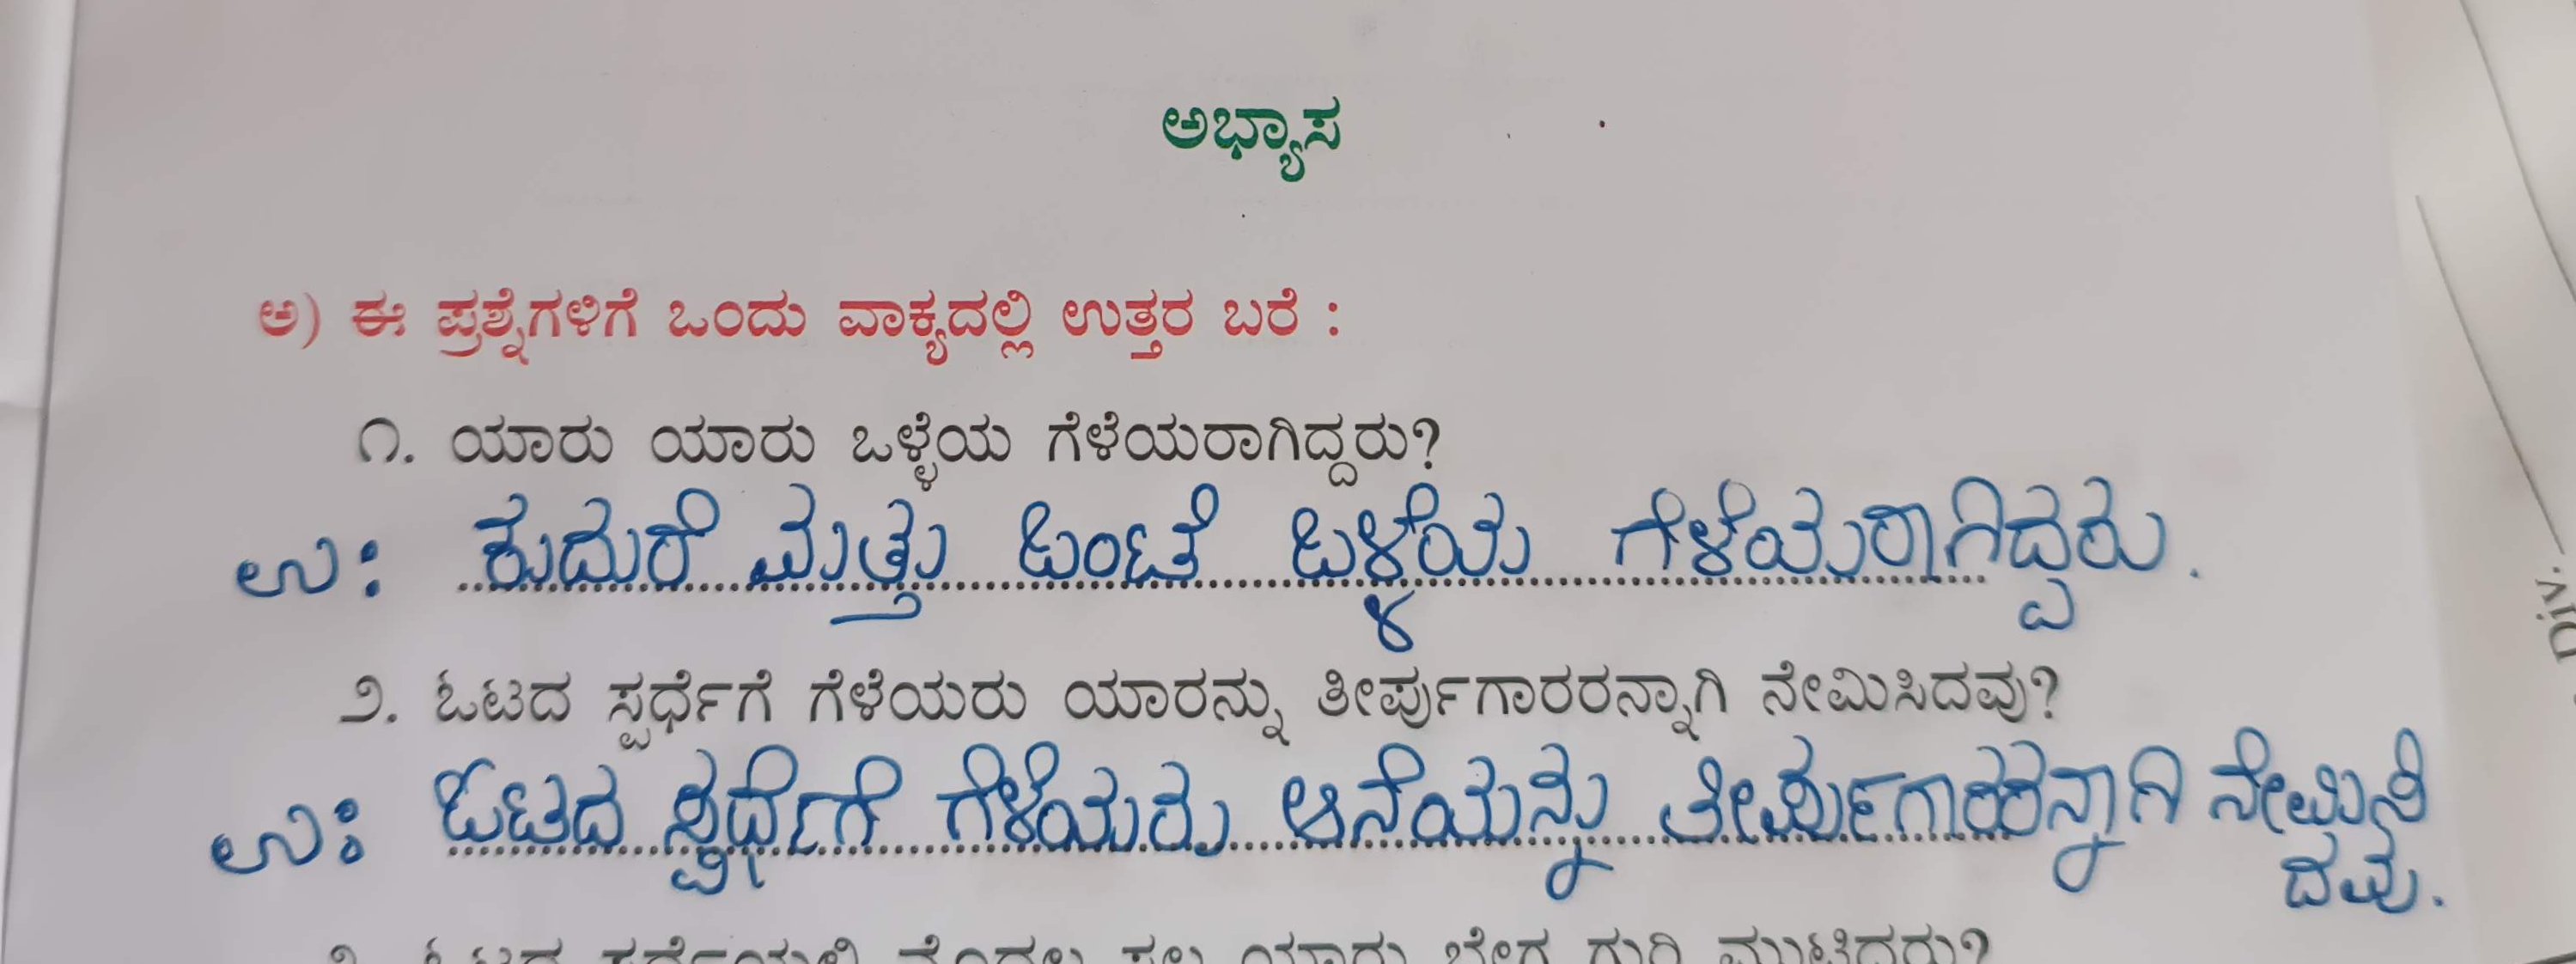 ಅಭ್ಯಾಸ
ಅ) ಈ ಪ್ರಶ್ನೆಗಳಿಗೆ ಒಂದು ವಾಕ್ಯದಲ್ಲಿ ಉತ್ತರ ಬರೆ :
೧. ಯಾರು ಯಾರು ಒಳ್ಳೆಯ ಗೆಳೆಯರಾಗಿದ್ದರು?
ಉ: ಕುದುರೆ ಮತ್ತು ಒಂಟೆ ಒಳ್ಳೆಯ ಗೆಳೆಯರಾಗಿದ್ದರು.
೨. ಓಟದ ಸ್ಪರ್ಧೆಗೆ ಗೆಳೆಯರು ಯಾರನ್ನು ತೀರ್ಪುಗಾರರನ್ನಾಗಿ ನೇಮಿಸಿದವು?
ಉ: ಓಟದ ಸ್ಪರ್ಧೆಗೆ ಗೆಳೆಯರು ಆನೆಯನ್ನು ತೀರ್ಪುಗಾರರನ್ನಾಗಿ ನೇಮಿಸಿ
ದವು.
೩. ಓಟದ ಸ್ಪರ್ಧೆಯಲ್ಲಿ ಮೊದಲ ಸಲ ಯಾರು ಬೇಗ ಗುರಿ ಮುಟ್ಟಿದರು?
Div.